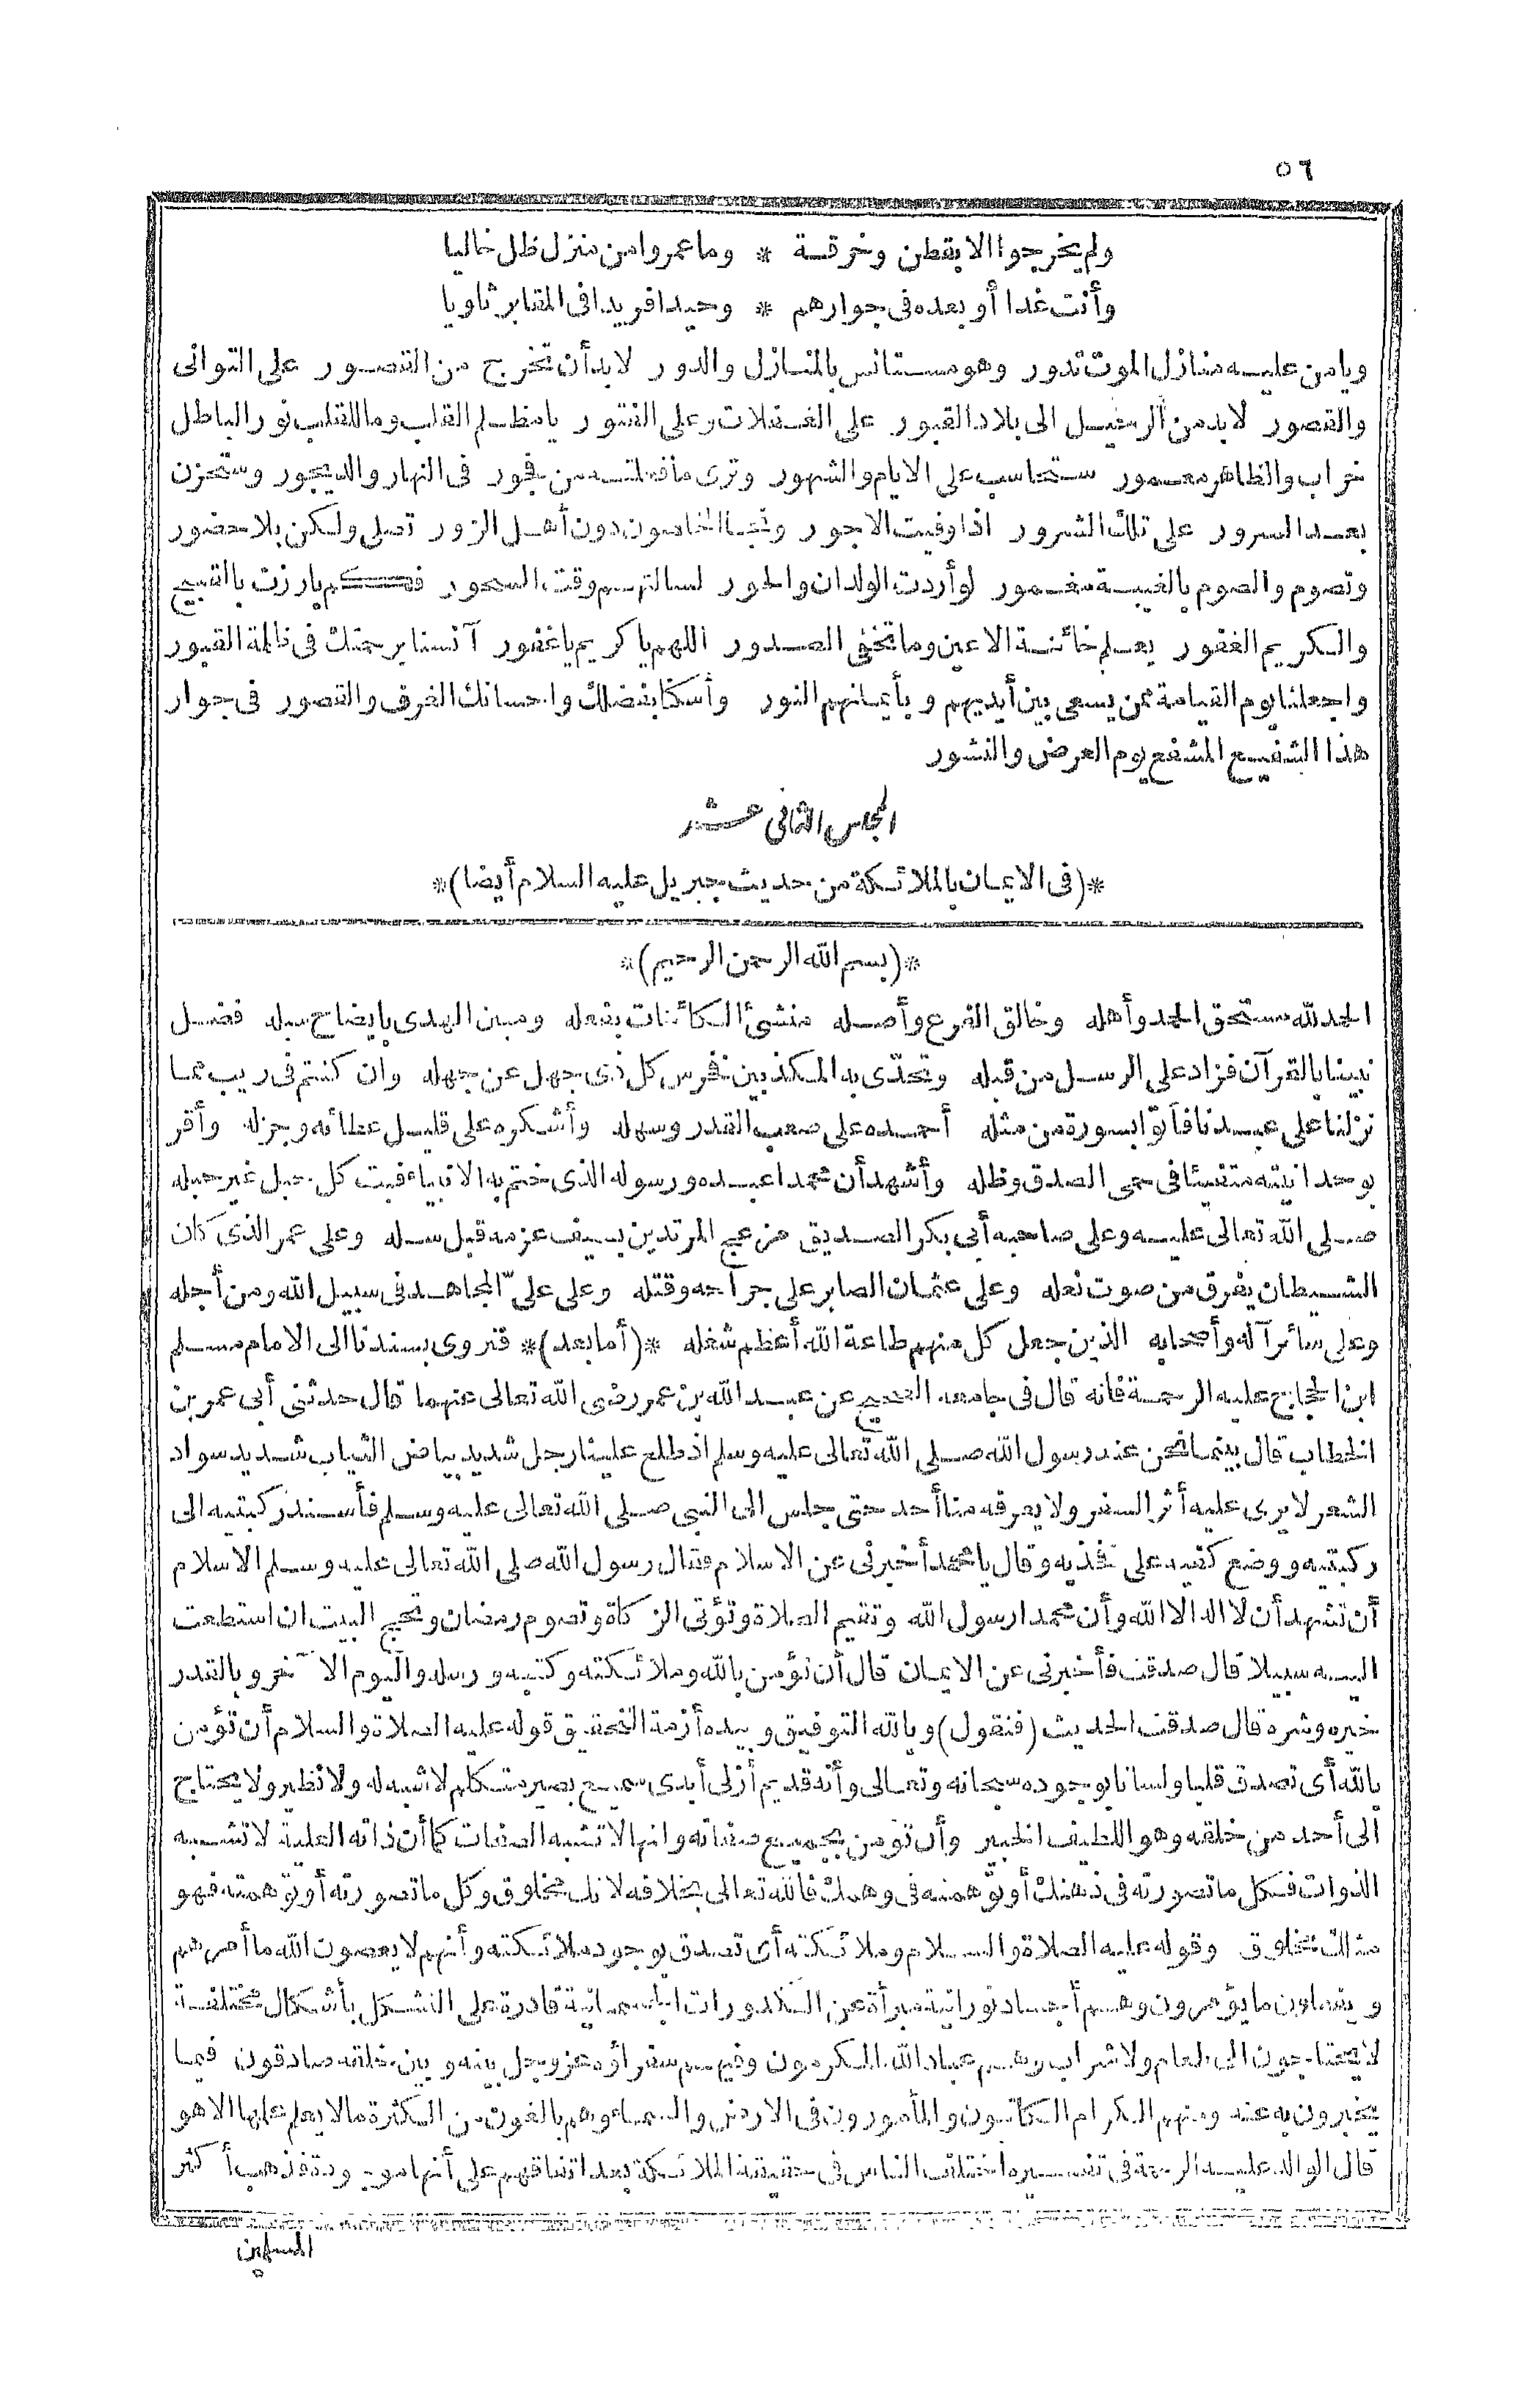 ٥٦
ولم يخرجوا الا بقطن وخرقة * وما عمروا من منزل ظل خاليا
وأنت غدا أو بعده فى جوارهم * وحيدا فريدا فى المقابر ثاويا
ويامن عليه منازل الموت تدور وهو مستانس بالمنازل والدور لابد أن تخرج من القصور على التوانى
والقصور لابد من الرحيل الى بلاد القبور على الغفلات وعلى الفتور يا مظلم القلب وما للقلب نور الباطل
خراب والظاهر معمور ستحاسب على الايام والشهور وترى ما فعلته من فجور فى النهار والديجور وستحزن
بعد السرور على تلك الشرور اذا وفيت الاجور ونجا المخلصون دون أهل الزور تصلى ولكن بلا حضور
وتصوم والصوم بالغيبة مغمور لو أردت الولدان والحور لسالتهم وقت السحور فكم بارزت بالقبيح
والكريم الغفور يعلم خائنة الاعين وما تخفى الصدور اللهم يا كريم يا غفور آنسنا برحمتك فى ظلمة القبور
واجعلنا يوم القيامة ممن يسعى بين أيديهم وبأيمانهم النور وأسكنا بفضلك واحسانك الغرف والقصور فى جوار
هذا الشفيع المشفع يوم العرض والنشور
المجلس الثانى عشر
*(فى الايمان بالملائكة من حديث جبريل عليه السلام أيضا)*
*(بسم الله الرحمن الرحيم)*
الحمد لله مستحق الحمد وأهله وخالق الفرع وأصله منشئ الكائنات بفعله ومبين الهدى بايضاح سبله فضل
نبينا بالقرآن فزاد على الرسل من قبله وتحدّى به المكذبين نفرس كل ذى جهل عن جهله وان كنتم فى ريب مما
نزلنا على عبدنا فأتوا بسورة من مثله أحمده على صعب القدر وسهله وأشكره على قليل عطائه وجزله وأقر
بوحدانيته متفيئا فى حمى الصدق وظله وأشهد أن محمدا عبده ورسوله الذى ختم به الانبياء فبت كل حبل غير حبله
صلى الله تعالى عليه وعلى صاحبه أبى بكر الصديق مزعج المرتدين بسيف عزمه قبل سله وعلى عمر الذى كان
الشيطان يفرق من صوت نعله وعلى عثمان الصابر على جراحه وقتله وعلى علىّ المجاهد فى سبيل الله ومن أجله
وعلى سائر آله وأصحابه الذين جعل كل منهم طاعة الله أعظم شغله *(أما بعد)* فنروى بسندنا الى الامام مسلم
ابن الحجاج عليه الرحمة فانه قال فى جامعه الصحيح عن عبد الله بن عمر رضى الله تعالى عنهما قال حدثنى أبى عمر بن
الخطاب قال بينما نحن عند رسول الله صلى الله تعالى عليه وسلم اذ طلع علينا رجل شديد بياض الثياب شديد سواد
الشعر لا يرى عليه أثر السفر ولا يعرفه منا أحد حتى جلس الى النبى صلى الله تعالى عليه وسلم فأسند ركبتيه الى
ركبتيه ووضع كفيه على نخذيه وقال يا محمد أخبرنى عن الاسلام فقال رسول الله صلى الله تعالى عليه وسلم الاسلام
أن تشهد أن لا اله الا الله وأن محمدا رسول الله وتقيم الصلاة وتؤتى الزكاة وتصوم رمضان وتحج البيت ان استطعت
اليه سبيلا قال صدقت فأخبرنى عن الايمان قال أن تؤمن بالله وملائكته وكتبه ورسله واليوم الآخر وبالقدر
خيره وشره قال صدقت الحديث (فنقول) وبالله التوفيق وبيده أزمة التحقيق قوله عليه الصلاة والسلام أن تؤمن
بالله أى تصدق قلبا ولسانا بوجوده سبحانه وتعالى وأنه قديم أزلى أبدى سميع بصير متكلم لا شبه له ولا نظير ولا يحتاج
الى أحد من خلقه وهو اللطيف الخبير وأن تؤمن بجميع صفاته وانها لا تشبه الصفات كما أن ذاته العلية لا تشبه
الذوات فكل ما تصورته فى ذهنك أو توّهمته فى وهمك فالله تعالى بخلافه لانك مخلوق وكل ما تصورته أو توّهمته فهو
مثلك مخلوق وقوله عليه الصلاة والسلام وملائكته أى تصدق بوجود ملائكته وأنهم لا يعصون الله ما أمرهم
ويفعلون ما يؤمرون وهم أجساد نورانية مبرأة عن الكدورات الجسمانية قادرة على التشكل بأشكال مختلفة
لا يحتاجون الى طعام ولا شراب وهم عباد الله المكرمون وفيهم سفراؤه عز وجل بينه وبين خلقه صادقون فيما
يخبرون به عنه ومنهم الكرام الكاتبون والمأمورون فى الارض والسماء وهم بالغون من الكثرة ما لا يعلم علمها الا هو
قال الوالد عليه الرحمة فى تفسيره اختلف الناس فى حقيقة الملائكة بعد اتفاقهم على أنها موجودة فذهب أكثر
المسلمين